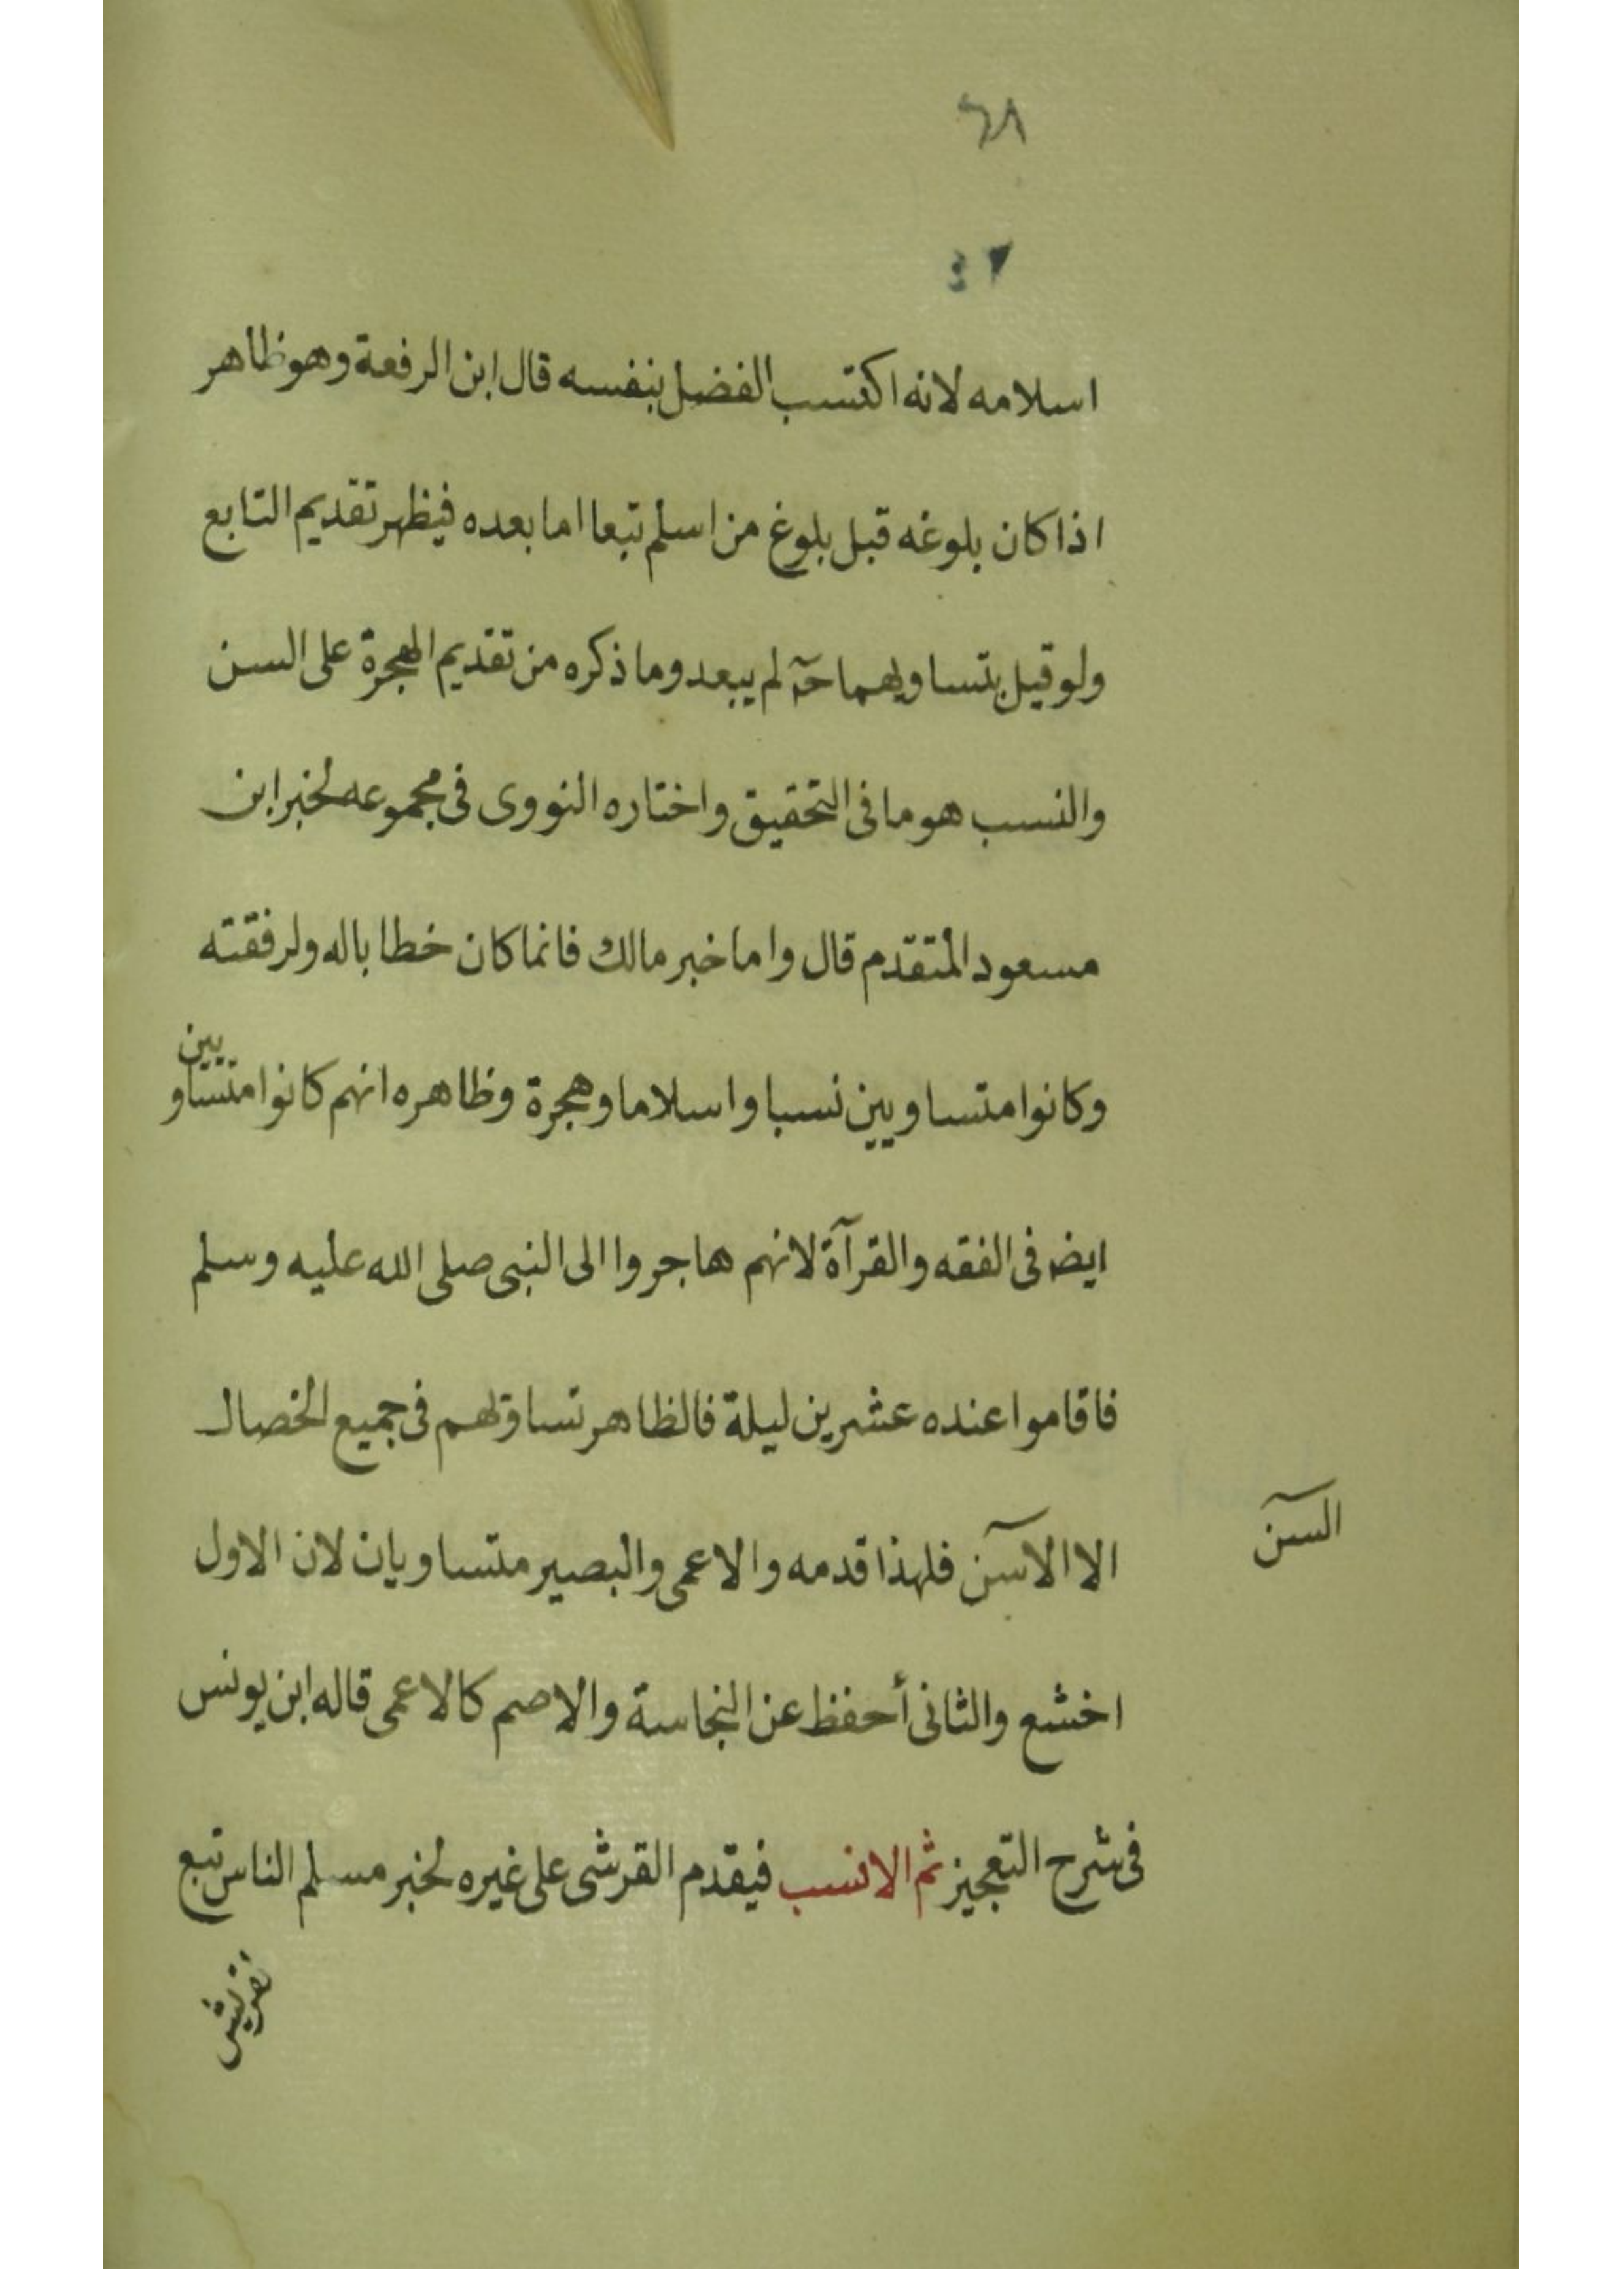 اسلامه لانه اكتسب الفضل بنفسه قال ابن الرفعة وهو ظاهر
اذا كان بلوغه قبل بلوغ من اسلم تبعا اما بعده فيظهر تقديم التابع
ولو قيل بتساويهما حـ لم يبعد وما ذكره من تقديم الهجرة على السن
والنسب هو ما فى التحقيق واختاره النووى فى مجموعه لخبر ابن
مسعود المتقدم قال واما خبر مالك فانما كان خطابا له ولرفقته
وكانوا متساويين نسبا واسلاما وهجرة وظاهره انهم كانوا متساويين
ايضـ فى الفقه والقرآة لانهم هاجروا الى النبى صلى الله عليه وسلم
فاقاموا عنده عشرين ليلة فالظاهر تساويهم فى جميع الخصال
الا الاسن فلهذا قدمه والاعمى والبصير متساويان لان الاول
السن
اخشع والثانى أحفظ عن النجاسة والاصم كالاعمى قاله ابن يونس
فى شرح التعجيز ثم الانسب فيقدم القرشى على غيره لخبر مسلم الناس تبع
لقريش